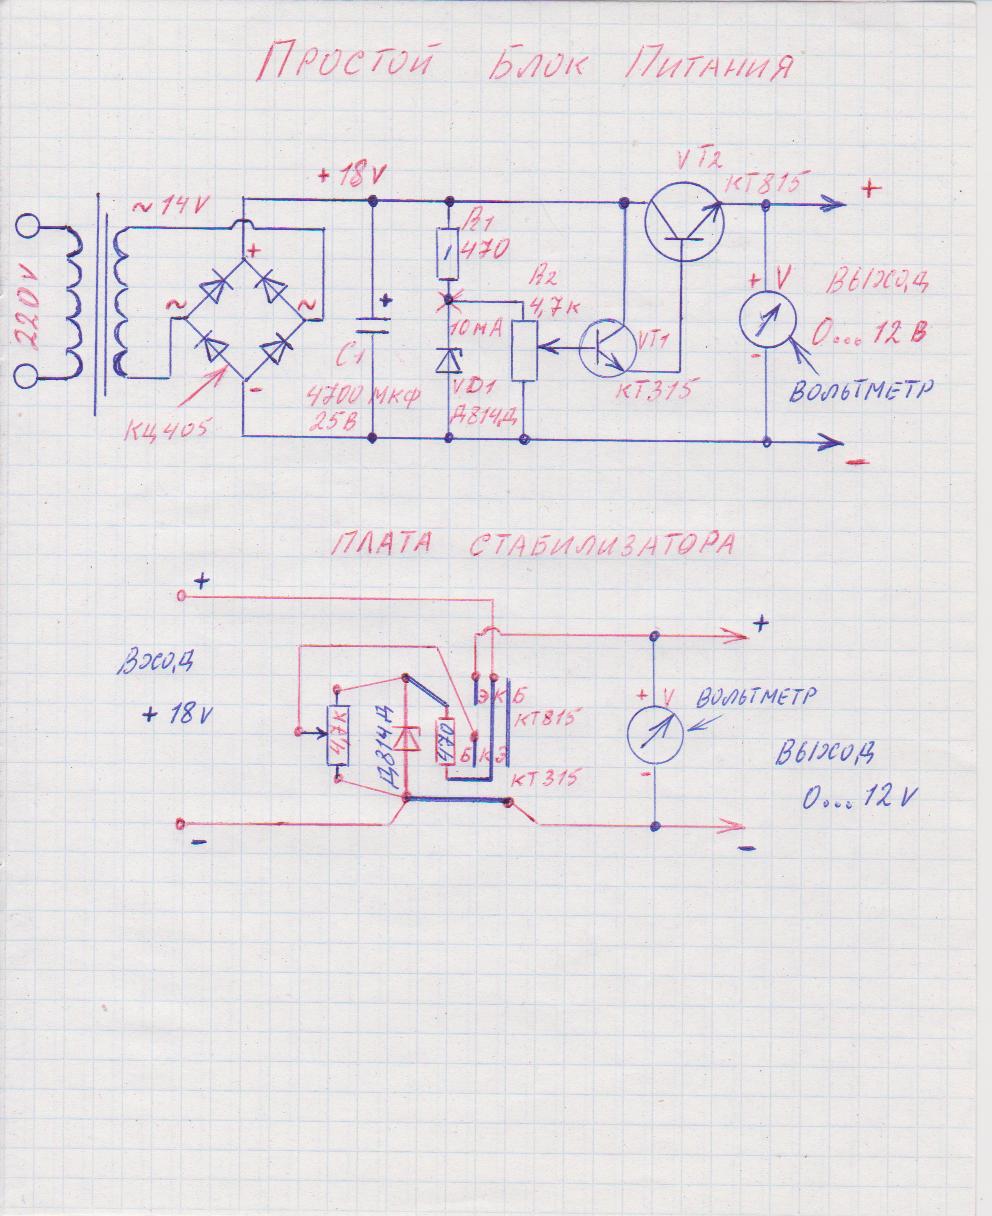 Простой Блок Питания
VT2
КТ815
+
+18V
~14V
220V
R1
470
+
~
~
-
КЦ405
C1
+
4700 МКФ
25В
10мА
VD1
Д814Д
R2
4,7к
VT1
КТ315
+ V
-
ВЫХОД
0...12 В
ВОЛЬТМЕТР
-
ПЛАТА СТАБИЛИЗАТОРА
+
Вход
+18V
-
4,7К
Д814Д
470
Э К Б
КТ815
Б К Э
КТ315
+
+ V
ВОЛЬТМЕТР
-
ВЫХОД
0...12V
-